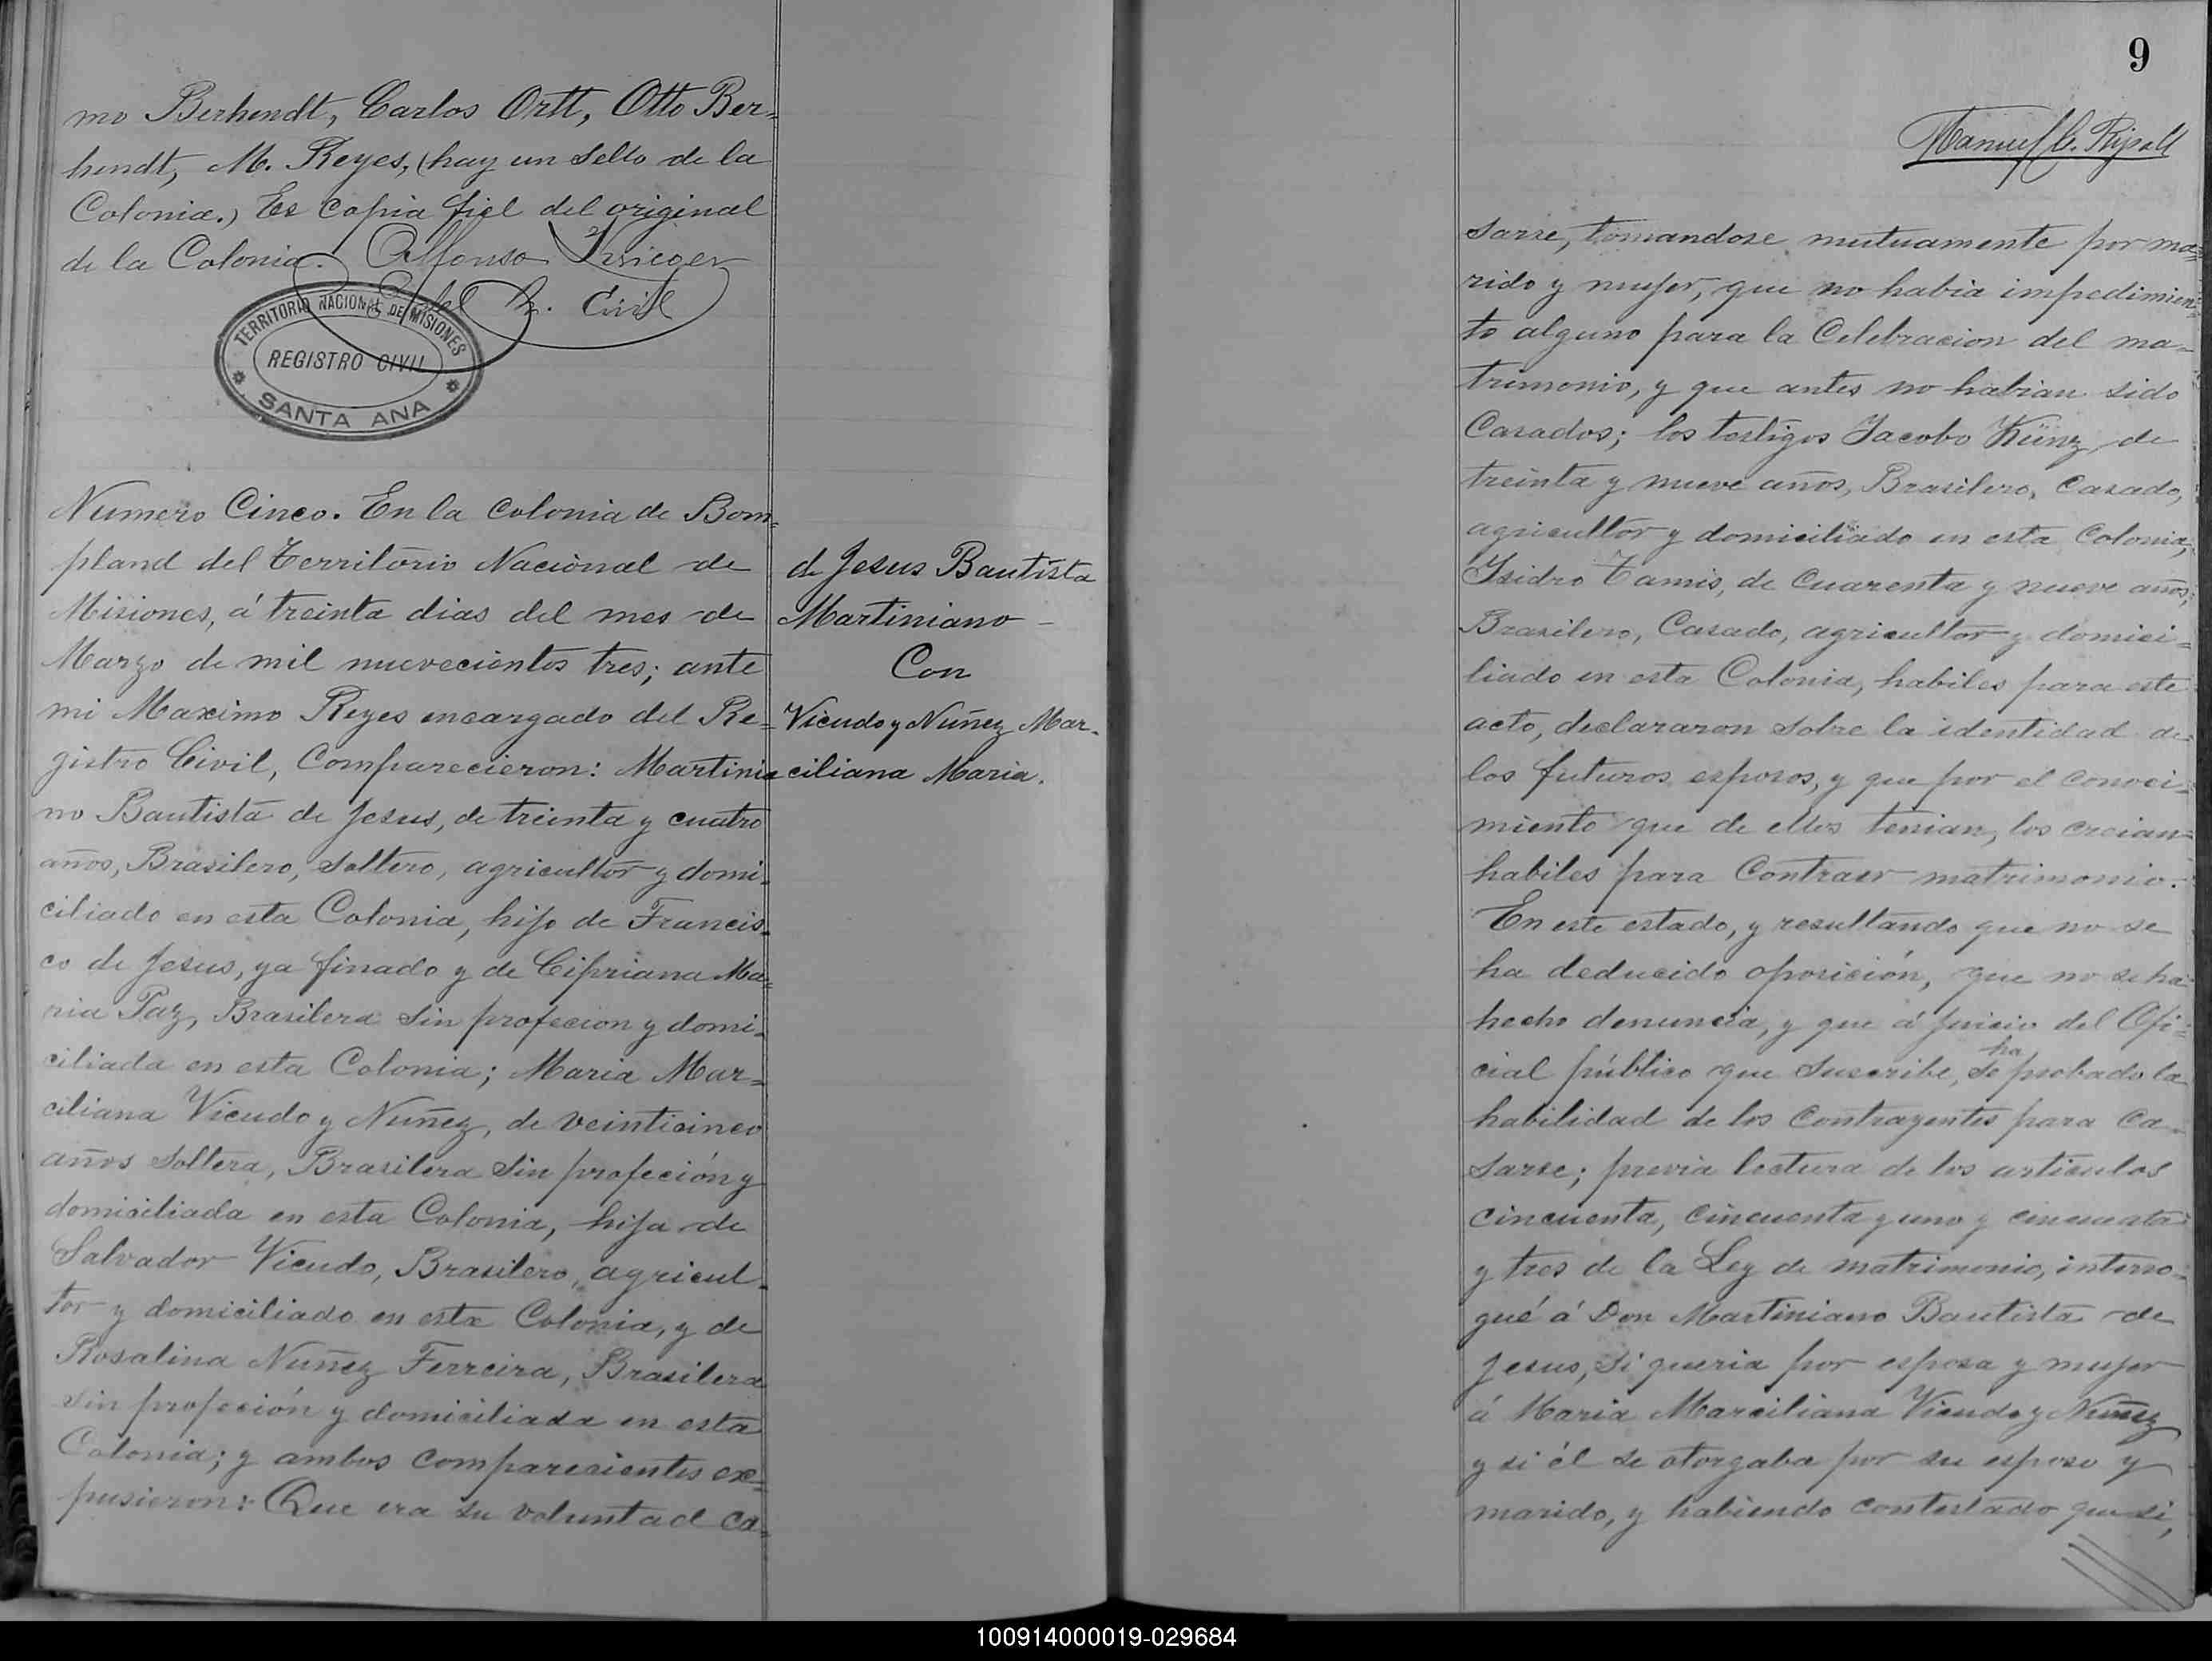 mo Berhendt, Carlos Ortt, Otto Ber=
hendt, M. Reyes, (hay un sello de la
Colonia.) Es Copia fiel del original
de la Colonia. Alfonso Krieger
E. del R. Civil
TERRITORIO NACIONAL DE MISIONES
REGISTRO CIVIL
SANTA ANA
Numero Cinco. En la Colonia de Bom=
pland del Territorio Nacional de
Misiones, á treinta dias del mes de
Marzo de mil nuevecientos tres; ante
mi Maximo Reyes encargado del Re=
gistro Civil, Comparecieron: Martinia
no Bautista de Jesus, de treinta y cuatro
años, Brasilero, Soltero, agricultor y domi=
ciliado en esta Colonia, hijo de Francis=
co de Jesus, ya finado y de Cipriana Ma=
ria Paz, Brasilera Sin profecion y domi=
ciliada en esta Colonia; Maria Mar=
ciliana Vicudo y Nuñez, de veinticinco
años Soltera, Brasilera Sin profeción y
domiciliada en esta Colonia, hija de
Salvador Vicudo, Brasilero, agricul=
tor y domiciliado en esta Colonia, y de
Rosalina Nuñez Ferreira, Brasilera
Sin profeción y domiciliada en esta
Colonia; y ambos Comparecientes ex=
pusieron: Que era su voluntad Ca=
de Jesus Bautista
Martiniano –
Con
Vicudo y Nuñez Mar-
ciliana Maria.
9
Manuel C. Ripoll
sarse, tomandose mutuamente por ma=
rido y mujer, que no habia impedimien=
to alguno para la Celebracion del ma=
trimonio, y que antes no habian sido
Casados; los testigos Jacobo Künz, de
treinta y nueve años, Brasilero, Casado,
agricultor y domiciliado en esta Colonia,
Isidro Tamis, de Cuarenta y nueve años,
Brasilero, Casado, agricultor y domici=
liado en esta Colonia, habiles para este
acto, declararon sobre la identidad de
los futuros esposos, y que por el conoci=
miento que de ellos tenian, los creian
habiles para Contraer matrimonio.
En este estado, y resultando que no se
ha deducido oposición, que no se ha
hecho denuncia, y que á juicio del Ofi=
cial público que Suscribe, se ha probado la
habilidad de los Contrayentes para Ca=
sarse; previa lectura de los articulos
cincuenta, cincuenta y uno y cincuenta
y tres de la Ley de matrimonio, interro=
gué á Don Martiniano Bautista de
Jesus, Si queria por esposa y mujer
á Maria Marciliana Vicudo y Nuñez
y si él se otorgaba por su esposo y
marido, y habiendo contestado que si,
100914000019-029684